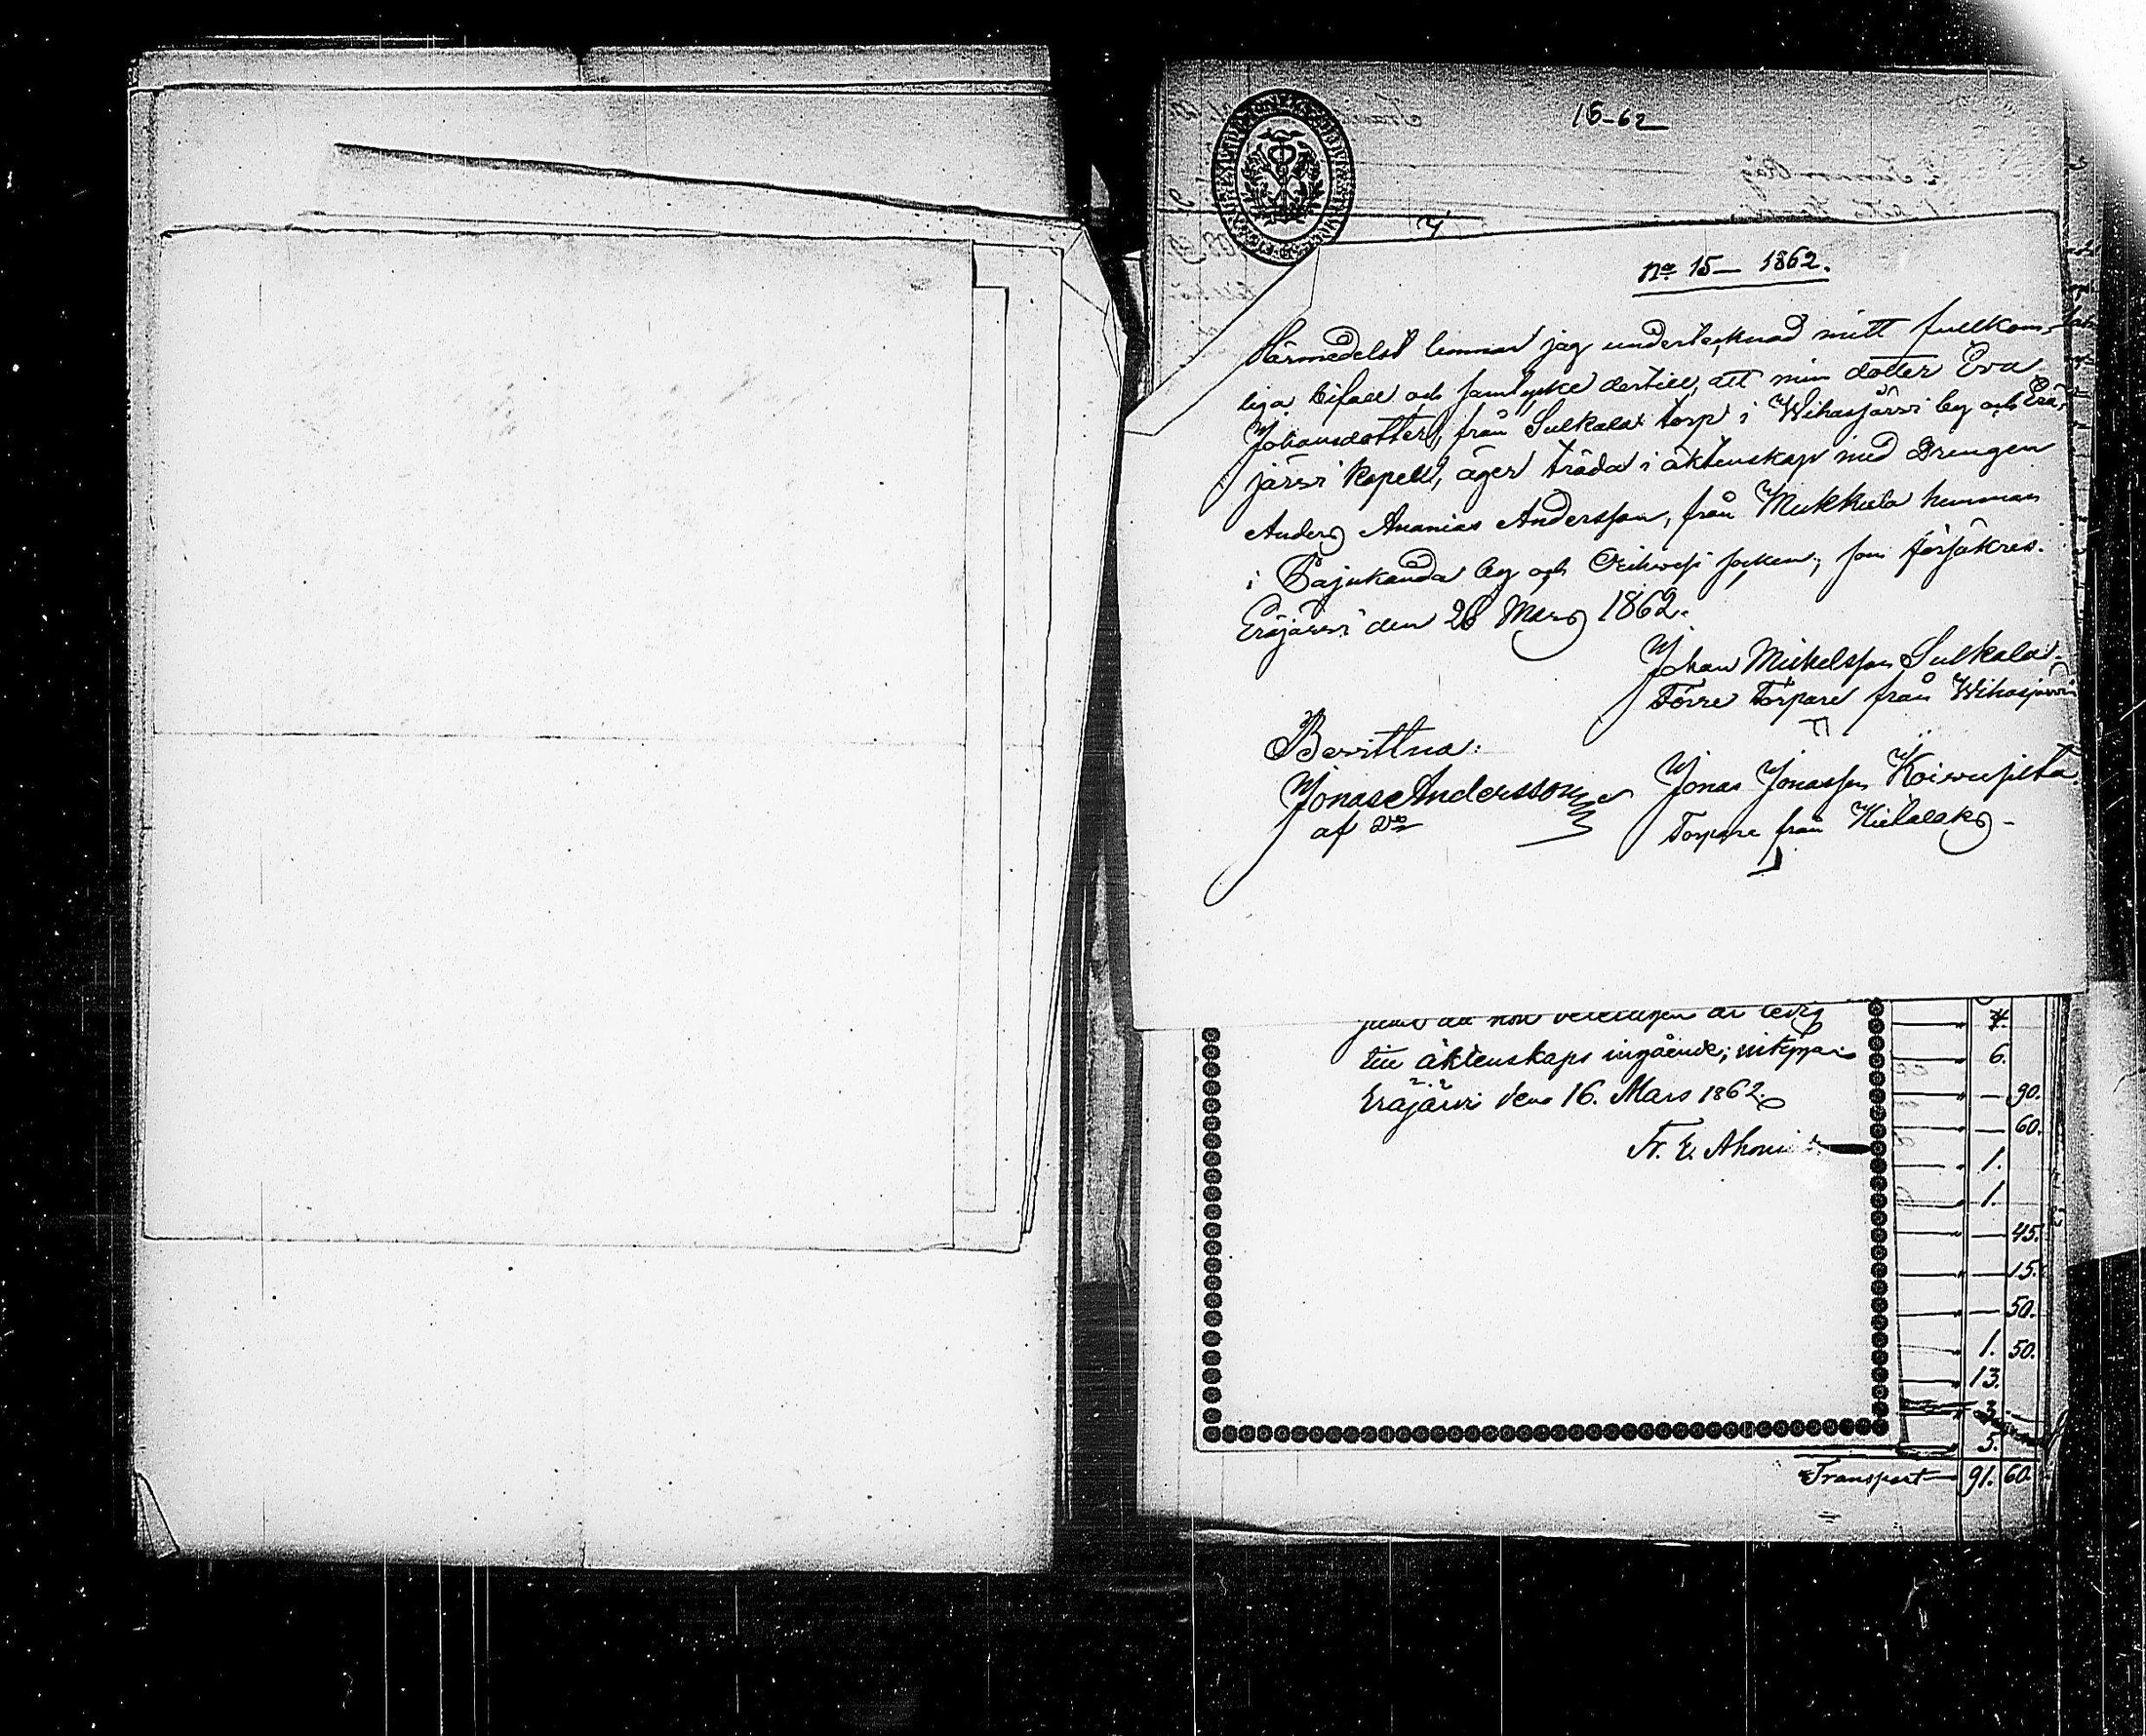 15-62
No 15 — 1862.
Härmedelst lemnar jag undertecknad mitt fullkom-
liga bifall och samtycke dertill, att min dotter Eva
Johansdotter, från Sulkala torp i Wihasjärvi by och Erä-
järvi kapell, äger träda i äktenskap med Drengen
Anders Ananias Andersson, från Mukkula hemman
i Pajukanda by och Orihvesi socken; som försäkres.
Eräjärvi den 26 Mars 1862.
Johan Mickelsson Sulkala
Förre Torpare från Wihasjärvi
Bevittna:
Jonas Andersson
af
Jonas Jonasson Koivusilta
Torpare från Hietalaks
till äktenskaps ingående;
Eräjärvi den 16. Mars 1862.
Fr. E.
4.
6.
— 90.
— 60.
1.
1.
— 45.
— 15.
— 50.
1. 50.
13.
3.
5.
Transport — 91. 60